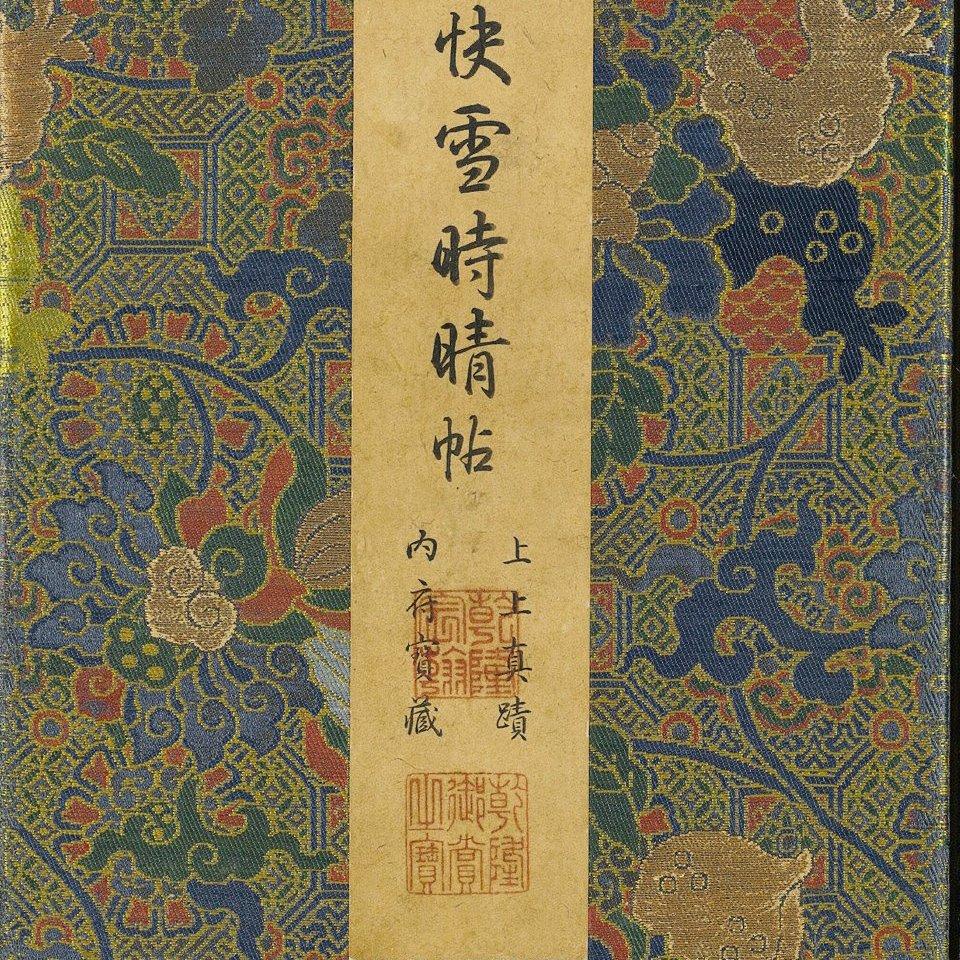 快雪時晴帖
上上真蹟
內府寶藏
乾隆
宸翰
乾隆
御賞
之寶